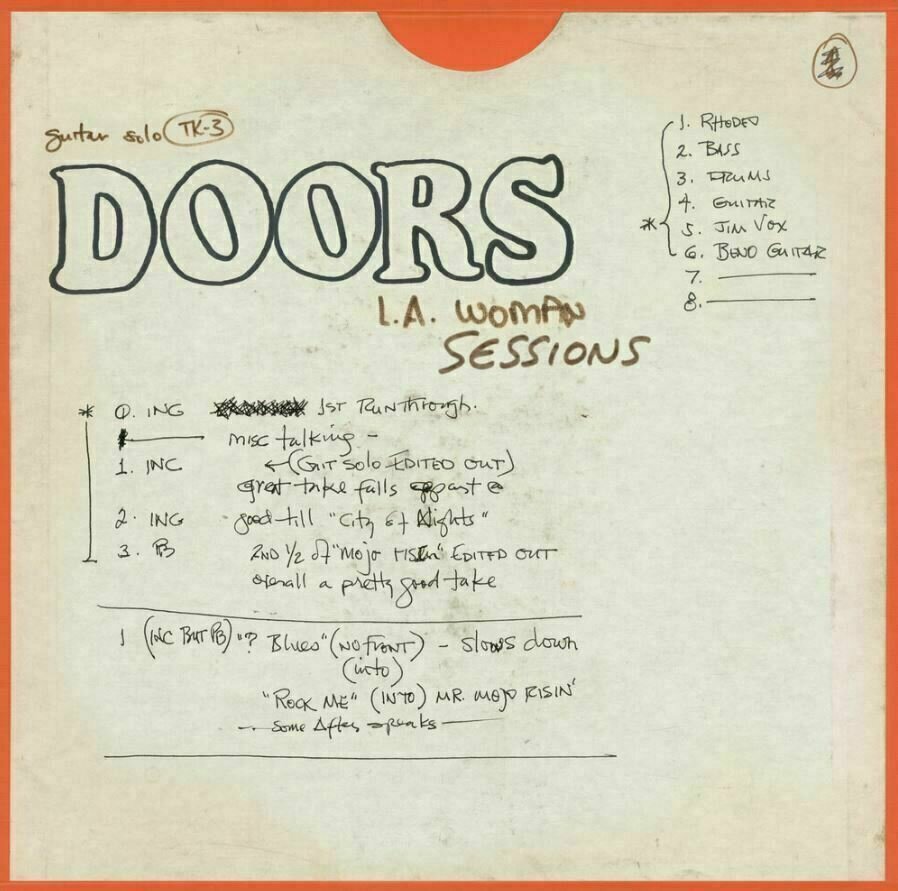 guitar solo TK-3
DOORS
L.A. WOMAN
SESSIONS
1. RHODES
2. BASS
3. DRUMS
4. GUITAR
* 5. JIM VOX
6. BENO GUITAR
7.
8.
* 0. INC 1ST RUNthrough.
misc talking -
1. INC ←(GIT SOLO EDITED OUT)
great take falls apart @
2. INC good till "City of Nights"
3. PB 2ND 1/2 of "Mojo RISIn" EDITED OUT
overall a pretty good take
1 (INC BUT PB) "? Blues" (NO FRONT) - slows down
(into)
"ROCK ME" (INTO) MR. MOJO RISIN'
- Some After speaks -